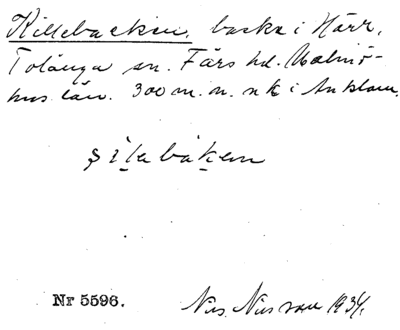 Killebacken, backe i Harr,
Tolånga sn. Färs hd. Malmö-
hus län. 300 m. n.
ʂilabaken
Nr 5596.
Nils Nilsson 1934.